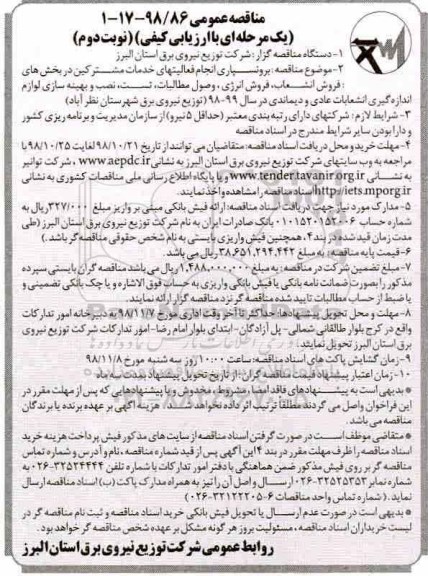 مناقصه عمومی ۹۸/۸۶-۱۷-۱
(یک مرحله ای با ارزیابی کیفی) (نوبت دوم)
۱- دستگاه مناقصه گزار: شرکت توزیع نیروی برق استان البرز
۲- موضوع مناقصه: برونسپاری انجام فعالیتهای خدمات مشترکین در بخش های
: فروش انشعاب، فروش انرژی، وصول مطالبات، تست، نصب و بهینه سازی لوازم
اندازه گیری انشعابات عادی و دیماندی در سال ۹۹-۹۸ (توزیع نیروی برق شهرستان نظرآباد)
۳- شرایط لازم: شرکتهای دارای رتبه بندی معتبر (حداقل ۵ نیرو) از سازمان مدیریت و برنامه ریزی کشور
و دارا بودن سایر شرایط مندرج در اسناد مناقصه
۴- مهلت خرید و محل دریافت اسناد مناقصه: متقاضیان می توانند از تاریخ ۹۸/۱۰/۲۱ لغایت ۹۸/۱۰/۲۵ با
مراجعه به وب سایتهای شرکت توزیع نیروی برق استان البرز به نشانی www.aepdc.ir ، شرکت توانیر
به نشانی www.tender.tavanir.org.ir و یا پایگاه اطلاع رسانی ملی مناقصات کشوری به نشانی
http://iets.mporg.ir اسناد مناقصه را مشاهده و اخذ نمایند.
۵- مدارک مورد نیاز جهت دریافت اسناد مناقصه: ارائه فیش بانکی مبنی بر واریز مبلغ ۳۲۷/۰۰۰ ریال به
شماره حساب ۰۱۰۱۵۲۰۱۵۲۰۰۶ بانک صادرات ایران به نام شرکت توزیع نیروی برق استان البرز (طی
مدت زمان قید شده در بند ۴، همچنین فیش واریزی بایستی به نام شخص حقوقی مناقصه گر باشد.)
۶- قیمت پایه مناقصه: به مبلغ ۳۸,۶۵۱,۲۹۴,۴۴۲ ریال می باشد.
۷- مبلغ تضمین شرکت در مناقصه: به مبلغ ۱,۴۸۸,۰۰۰,۰۰۰ ریال می باشد مناقصه گران بایستی سپرده
مذکور را بصورت ضمانت نامه بانکی یا فیش بانکی واریزی به حساب فوق الاشاره و یا چک بانکی تضمینی و
یا ضبط از حساب مطالبات تایید شده مناقصه گر نزد مناقصه گزار ارائه نمایند.
۸- مهلت و محل تحویل پیشنهادها: حداکثر تا آخر وقت اداری مورخ ۹۸/۱۱/۷ به دبیرخانه امور تدارکات
واقع در کرج بلوار طالقانی شمالی- پل آزادگان- ابتدای بلوار امام رضا- امور تدارکات شرکت توزیع نیروی
برق استان البرز تحویل نمایند.
۹- زمان گشایش پاکت های اسناد مناقصه: ساعت ۱۰:۰۰ روز سه شنبه مورخ ۹۸/۱۱/۸
۱۰- زمان اعتبار پیشنهاد قیمت مناقصه گران: از تاریخ تحویل پیشنهاد بمدت سه ماه
* بدیهی است به پیشنهادهای فاقد امضا، مشروط، مخدوش و یا پیشنهادهایی که پس از مهلت مقرر در
این فراخوان واصل می گردند مطلقا ترتیب اثر داده نخواهد شد. هزینه آگهی بر عهده برنده یا برندگان
مناقصه می باشد.
* متقاضی موظف است در صورت گرفتن اسناد مناقصه از سایت های مذکور فیش پرداخت هزینه خرید
اسناد مناقصه را ظرف مهلت مقرر در بند ۴ این آگهی پس از قید شماره مناقصه، نام و آدرس و شماره تماس
مناقصه گر بر روی فیش مذکور ضمن هماهنگی با دفتر امور تدارکات با شماره تلفن ۳۲۵۲۴۴۴۴-۰۲۶ به
شماره نمابر ۳۲۵۲۵۳۵۳-۰۲۶ ارسال و اصل آن را نیز به همراه مدارک پاکت (ب) اسناد مناقصه ارسال
نماید. (شماره تماس واحد مناقصات ۶-۳۲۱۲۲۲۰۵-۰۲۶)
* بدیهی است در صورت عدم ارسال یا تحویل فیش بانکی خرید اسناد مناقصه و ثبت نام مناقصه گر در
لیست خریداران اسناد مناقصه، مسئولیت بروز هر گونه مشکل بر عهده شخص مناقصه گر خواهد بود.
روابط عمومی شرکت توزیع نیروی برق استان البرز